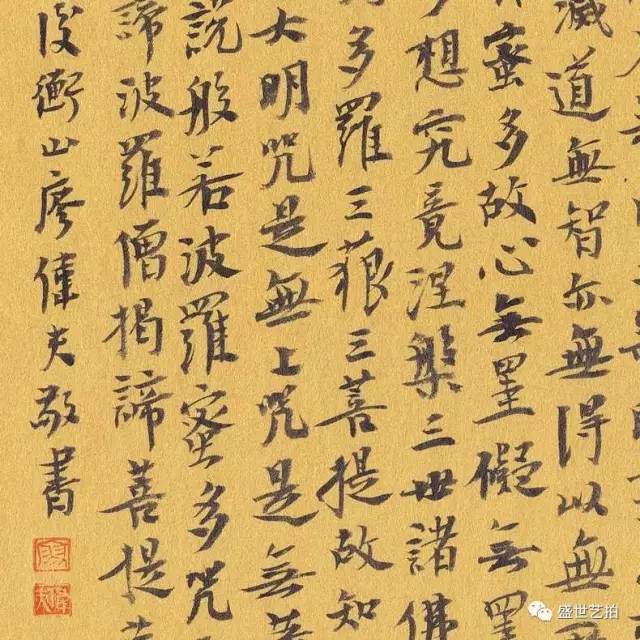 滅道無智亦無得以無
蜜多故心無罣礙無罣
想究竟涅槃三世諸佛
多羅三藐三菩提故知
大明咒是無上咒是無
說般若波羅蜜多咒
諦波羅僧揭諦菩提
衡山廖偉夫敬書
盛世艺拍